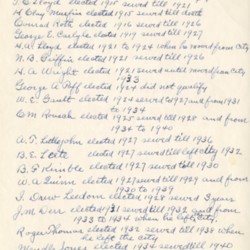 T. C. Lloyd elected 1915 served till 1921
Ed Clay Memphis elected 1915 served till death
Conrad Roth elected 1916 served till 1926
George E Carlyle elected 1919 served till 1927
H. A. Lloyd elected 1921 to 1924 when he moved from City
N. B. Griffin elected 1921 served till 1926
H A Wright elected 1921 served until moved from City
1923
George A Poff elected 1924 did not qualify
W. E. Bratt elected 1924 served to 1927 and from 1931
to 1934
C M Housh elected 1925 served till 1928 and from
1936 to 1940
A. T. Littlejohn elected 1927 served till 1936
B. E. elected 1927 served till left City 1932
B. F. Kimble elected 1927 served till 1930
W A Quinn elected 1927 served till 1929 and from
1930 to 1939
J. Drew Ledom elected 1928 served 3 years
J. M. Derr elected 1928 served till 1932 and from
1933 to 1934 when he left City.
Roger Thomas elected 1932 served till 1938 when
he left the city
Jones elected 1934 served till 1940